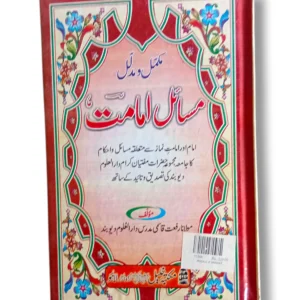 مکمل و مدلل
مسائل امامت
امام اور امامتِ نماز سے متعلقہ مسائل و احکام
کا جامع مجموعہ حضرات مفتیانِ کرام دارالعلوم
دیوبند کی تصدیق و تائید کے ساتھ
مؤلف
مولانا رفعت قاسمی مدرس دارالعلوم دیوبند